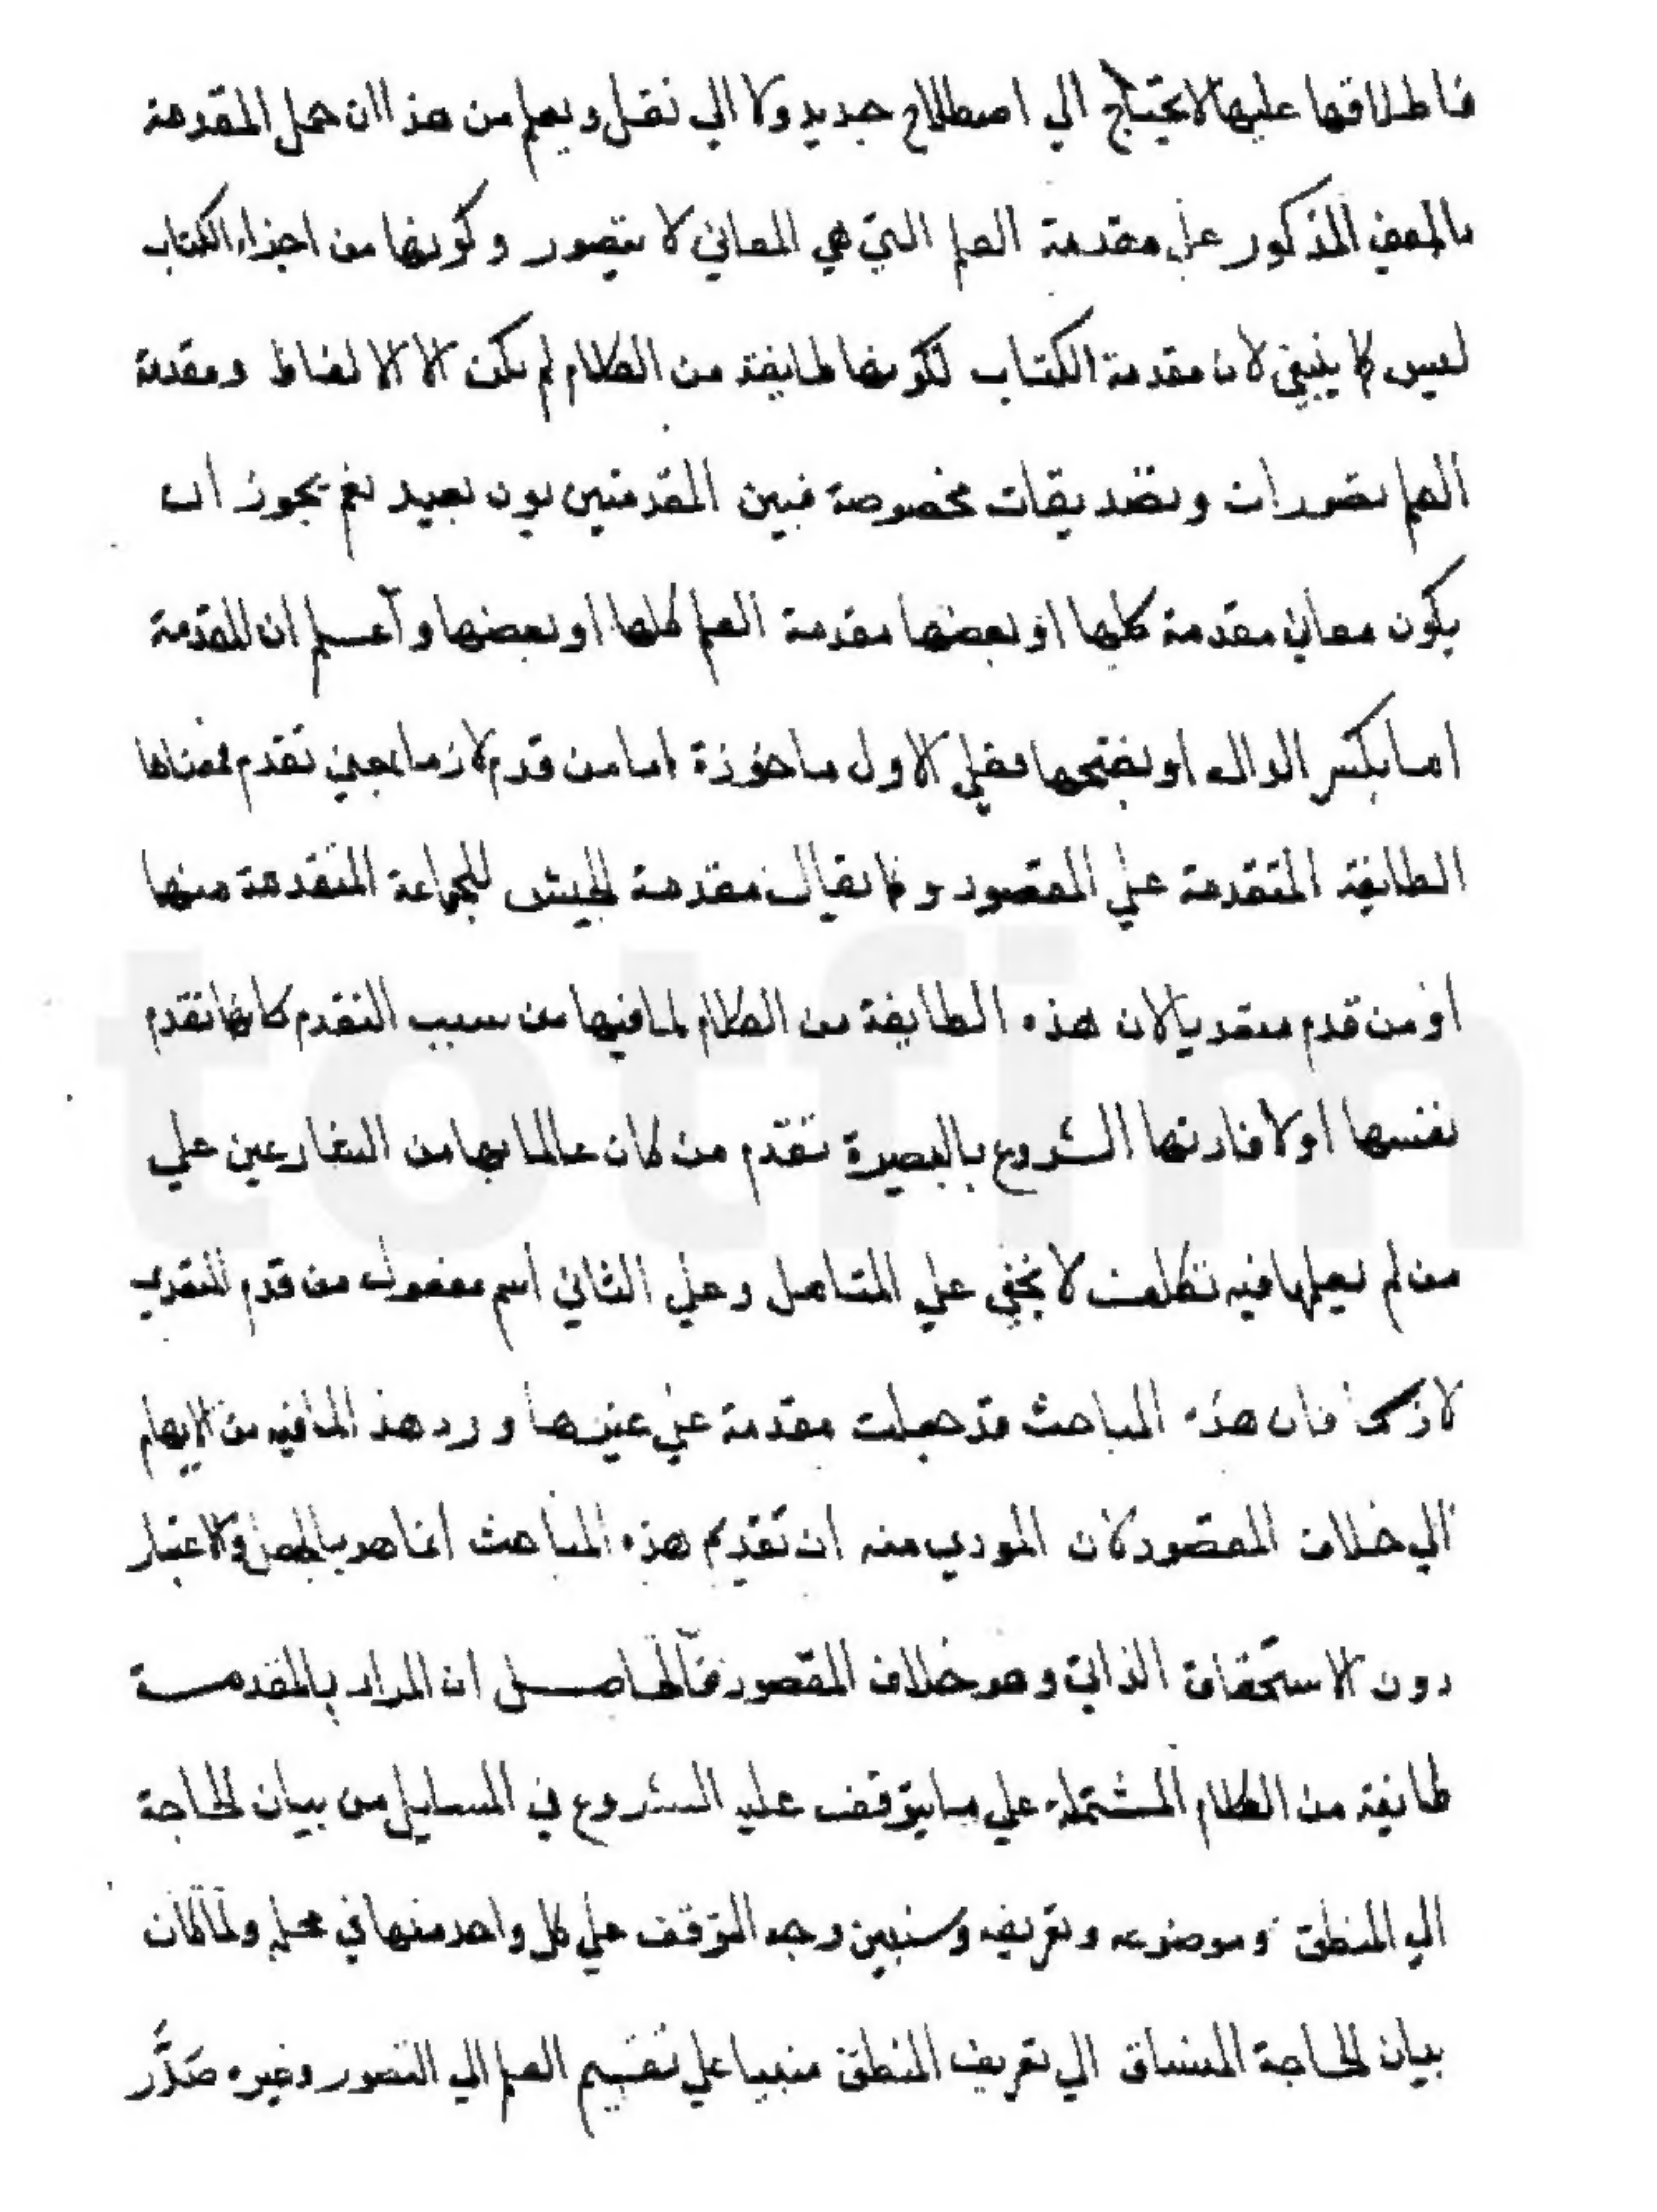 فاطلاقها عليها لا يحتاج الي اصطلاح جديد ولا الي نقل ويعلم من هذا ان حمل المقدمة
بالمعني المذكور علي مقدمة العلم التي هي المعاني لا يتصور وكونها من اجزاء الكتاب
ليس كما ينبغي لان مقدمة الكتاب لكونها طايفة من الكلام لم يكن الا الالفاظ ومقدمة
العلم تصورات وتصديقات مخصوصة فبين المقدمتين بون بعيد نعم يجوز ان
يكون معاني مقدمة كلها او بعضها مقدمة العلم كلها او بعضها وآعلم ان المقدمة
اما بكسر الدال او بفتحها فعلي الاول ماخوذة اما من قدم لازما بمعني تقدم فمعناها
الطايفة المتقدمة علي المقصود وكما يقال مقدمة الجيش للجماعة المتقدمة منها
او من قدم متعديا لان هذه الطايفة من الكلام لما فيها من سبب التقدم كانها تقدم
نفسها او لافادتها الشروع بالبصيرة تقدم من كان عالما بها من الشارعين علي
من لم يعلمها فيه تكلف لا يخفي علي المتامل وعلي الثاني اسم مفعول من قدم المتعدي
لازما فان هذه المباحث قد جعلت مقدمة علي غيرها ورد هذا لما فيه من الايهام
الي خلاف المقصود لان المودي منه ان تقديم هذه المباحث انما هو بالجعل والاعتبار
دون الاستحقاق الذاتي وهو خلاف المقصود فآلحاصل ان المراد بالمقدمة
طايفة من الكلام المشتملة علي ما يتوقف عليه الشروع في المسايل من بيان الحاجة
الي المنطق وموضوعه وتعريفه وسنبين وجه التوقف علي كل واحد منها في محله ولما كان
بيان الحاجة المنساق الي تعريف المنطق مبنيا علي تقسيم العلم الي التصور وغيره صَدَّر